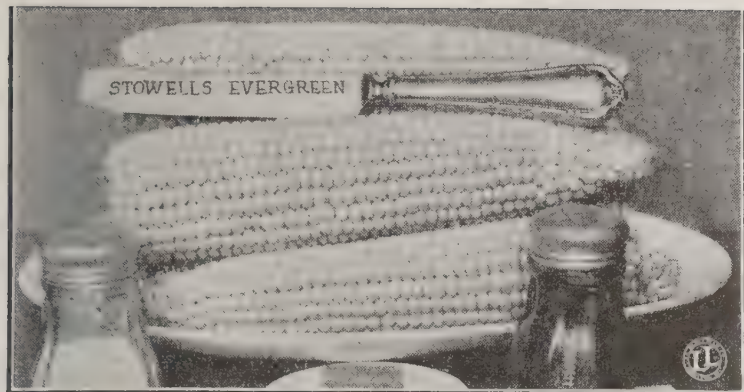 STOWELLS EVERGREEN